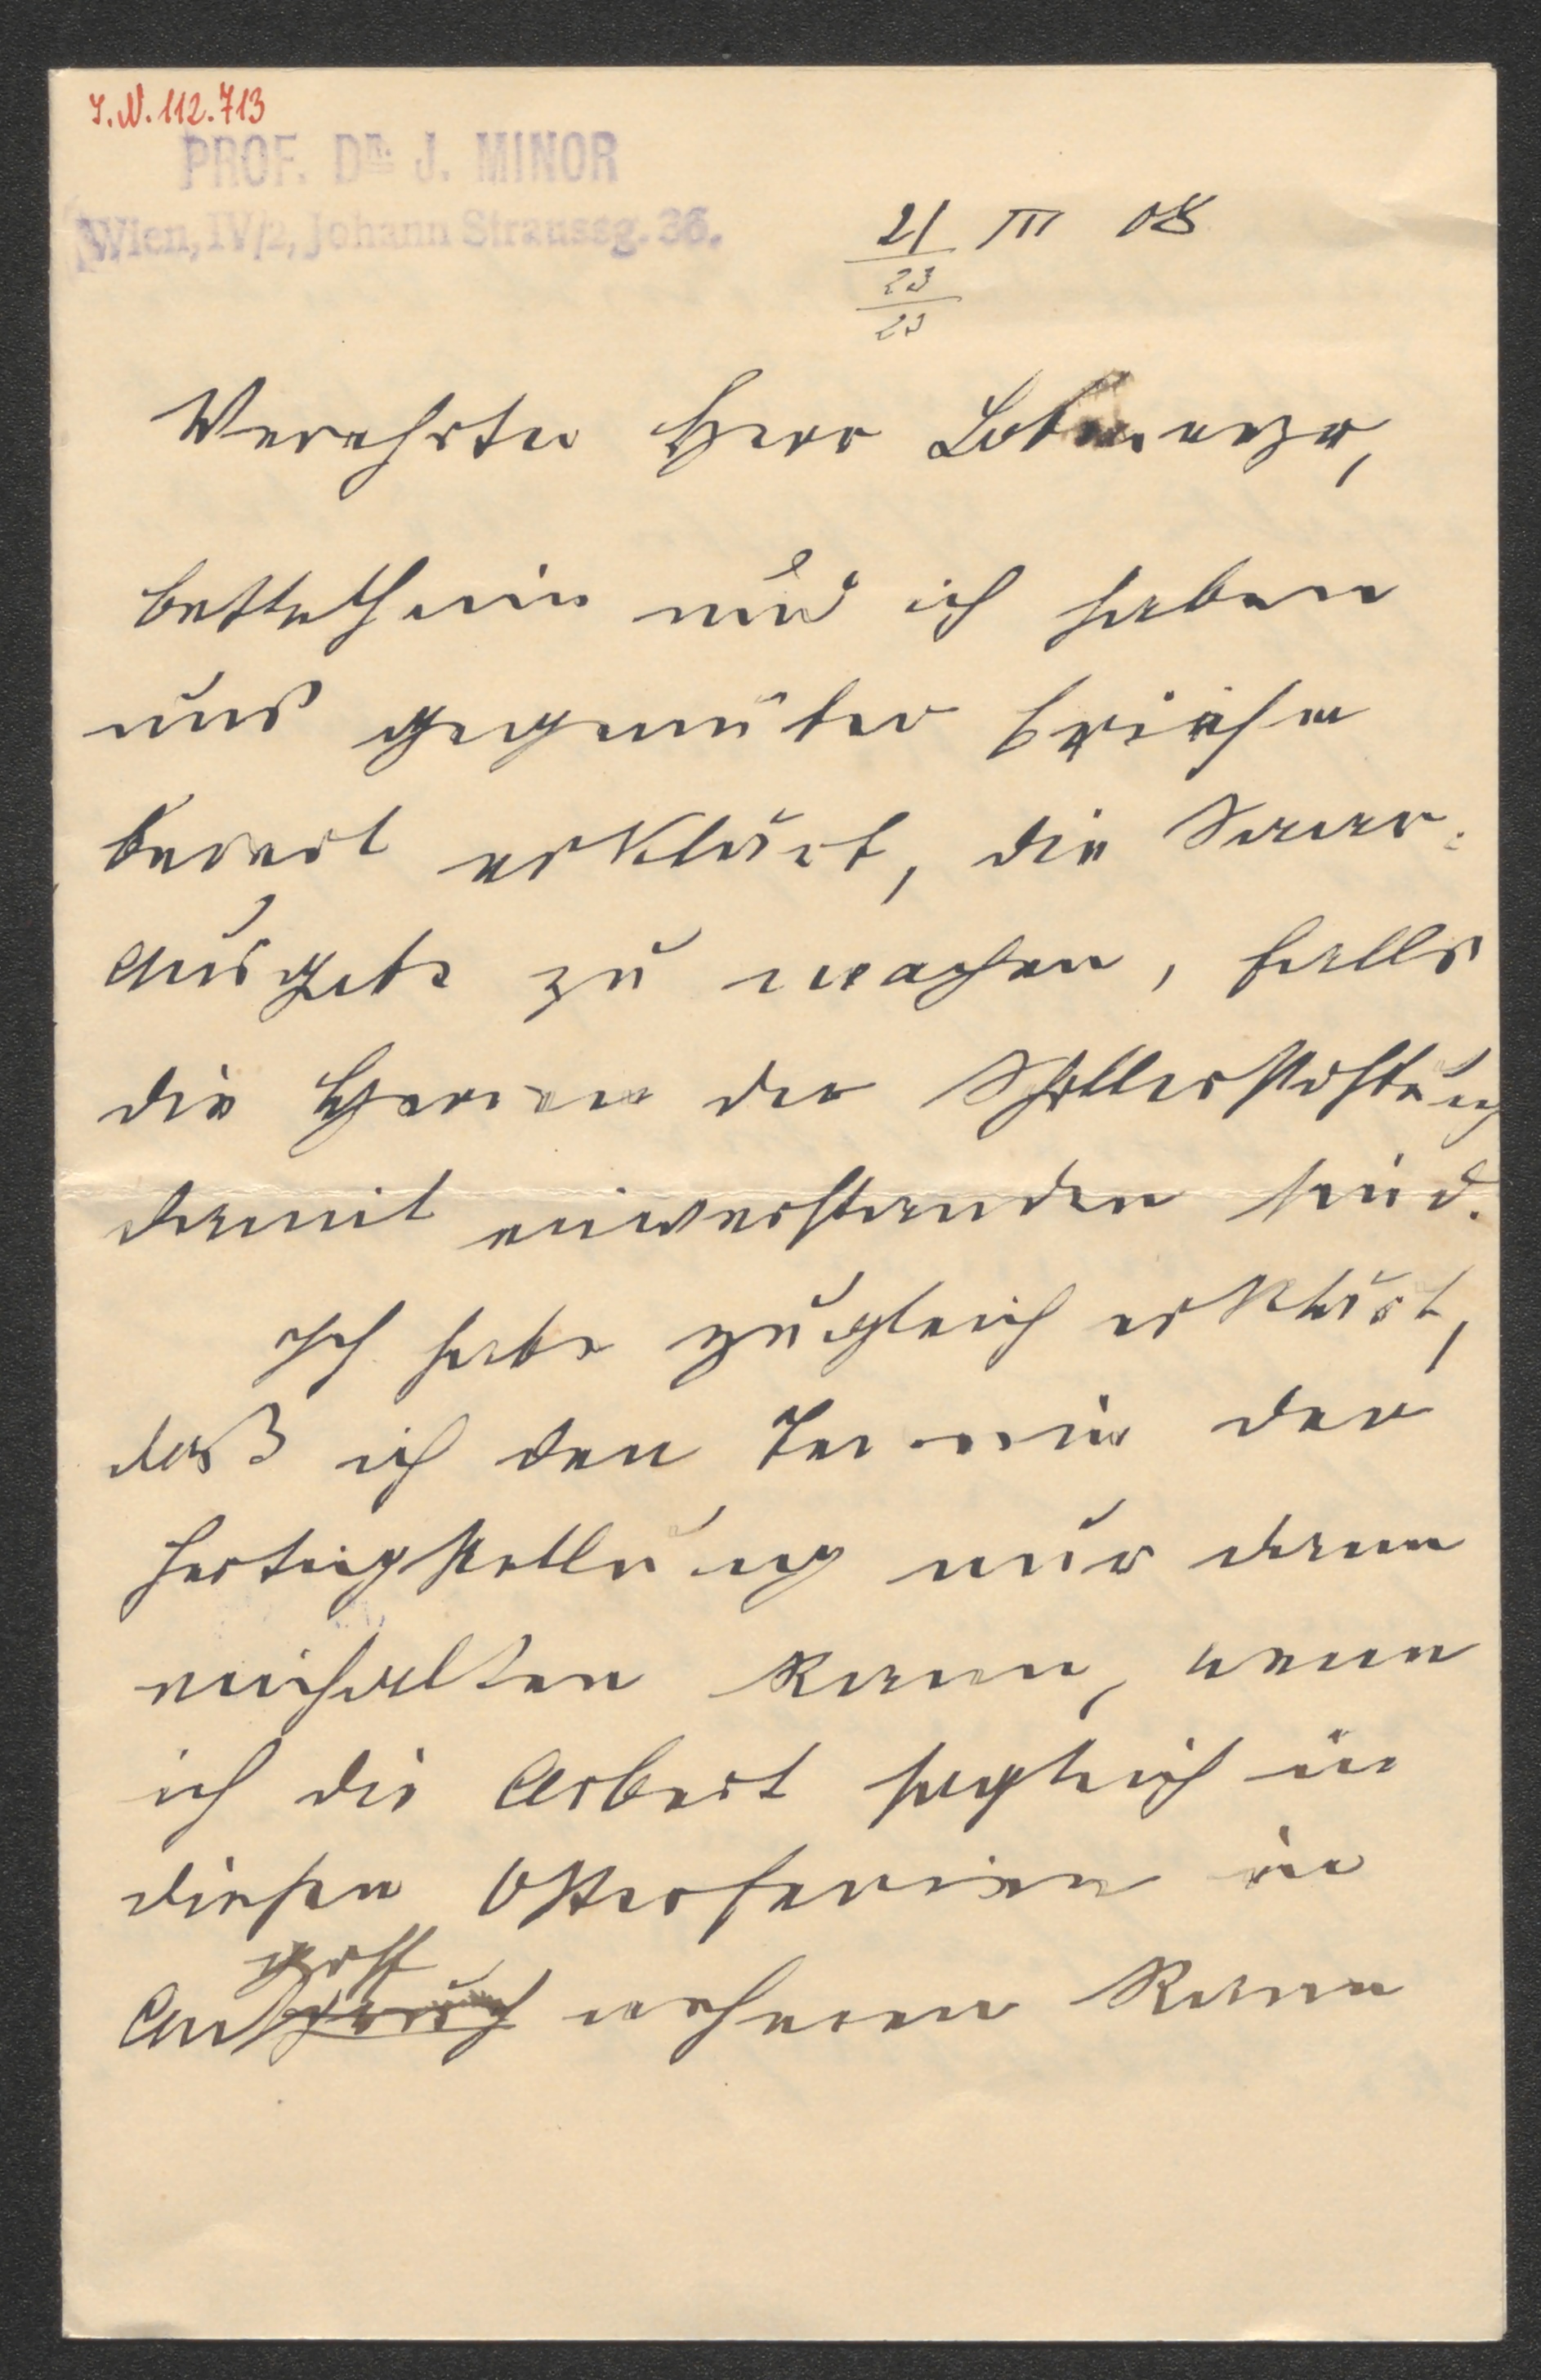 I.N. 112.713
PROF. DR. J. MINOR
Wien, IV/2, Johann Straussg. 36.
21 III 08
23
23
Verehrter Herr Lobmeyr,
Bettelheim und ich haben
uns gegenüber Briefen
bereit erklärt, die Saar-
ausgabe zu machen, falls
die Herren der Schillerstiftung
damit einverstanden sind.
Ich habe zugleich erklärt,
daß ich den Termin der
Fertigstellung nur dann
einhalten kann, wenn
ich die Arbeit sogleich in
diesen Osterferien in
Angriff nehmen kann